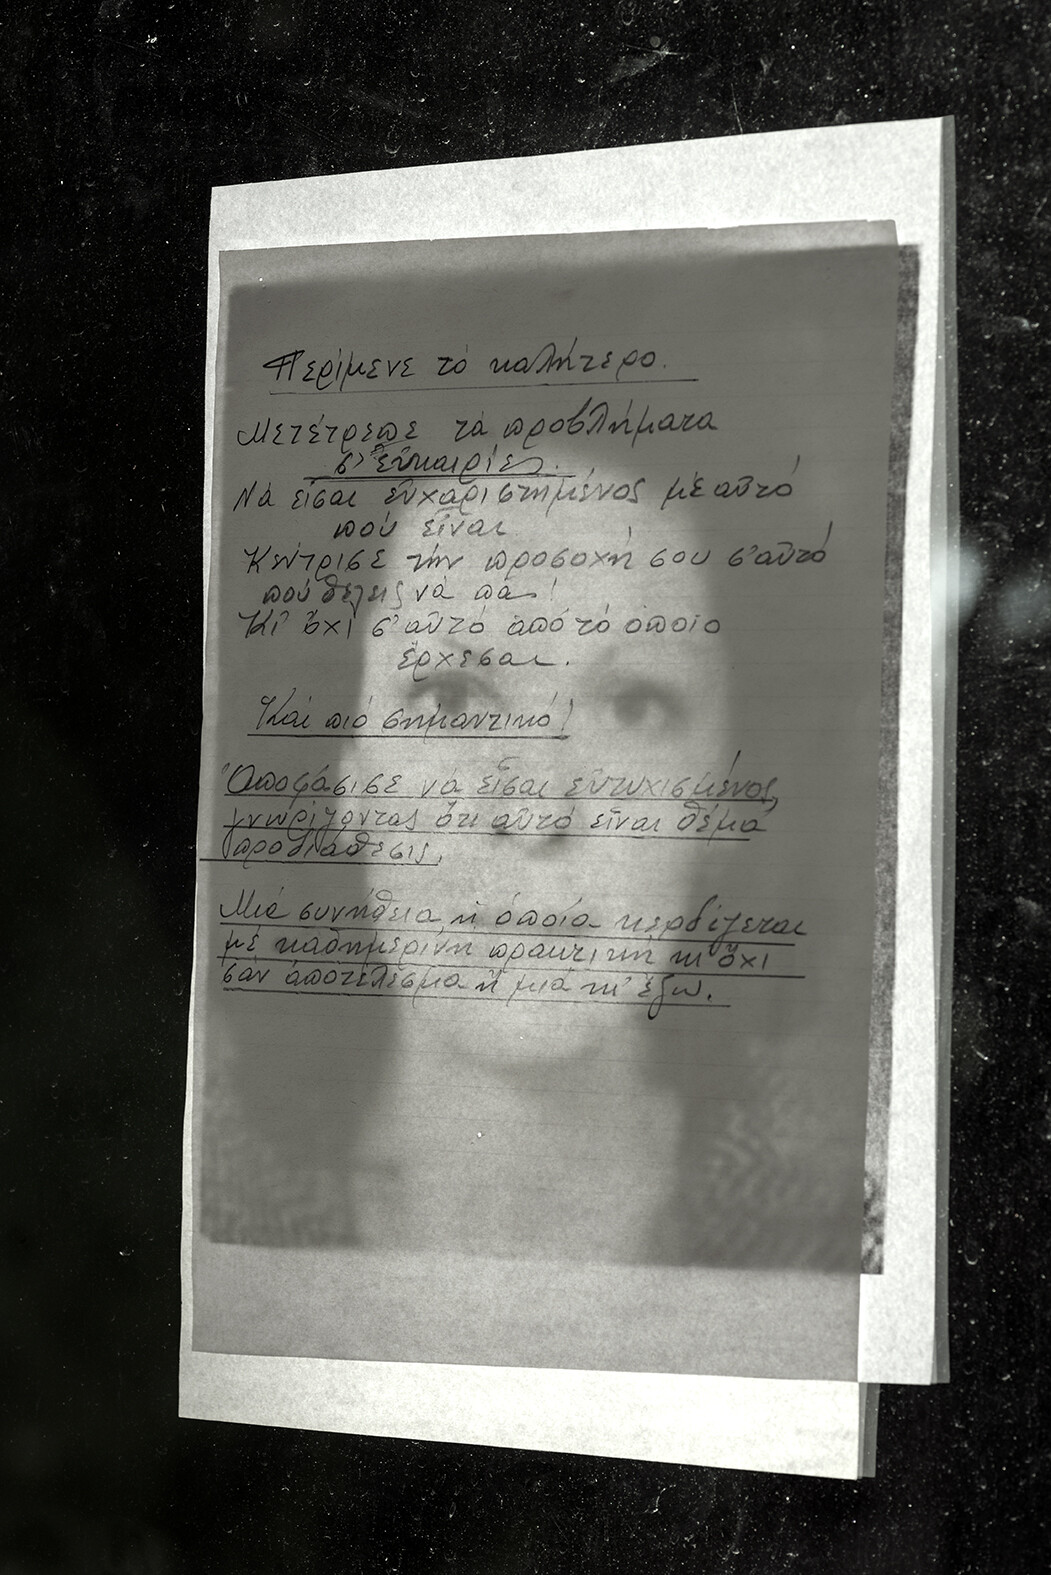 Περίμενε τό καλήτερο.
Μετέτρεπε τά προβλήματα
σ' εὐκαιρίες.
Νά εἶσαι εὐχαριστημένος μέ αὐτό
πού εἶναι
Κέντρισε τήν προσοχή σου σ' αὐτό
πού θέλεις νά πᾶς!
Κι' ὄχι σ' αὐτό ἀπό τό ὁποῖο
ἔρχεσαι.
Καί πιό σημαντικό!
Ἀποφάσισε νά εἶσαι εὐτυχισμένος,
γνωρίζοντας ὅτι αὐτό εἶναι θέμα
προδιάθεσις,
Μιά συνήθεια ἡ ὁποία κερδίζεται
μέ καθημερινή πρακτική κι' ὄχι
σάν ἀποτέλεσμα ἤ μιά κι' ἔξω.